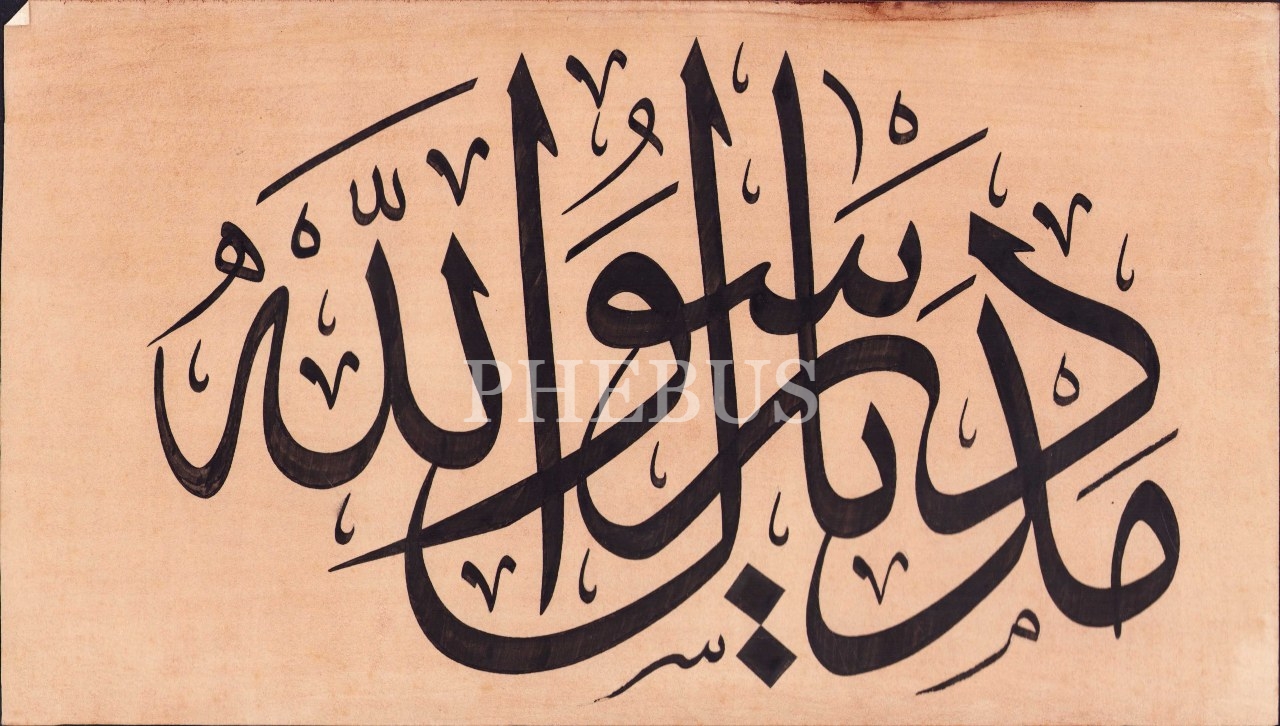 مدد يا رسول الله
PHEBUS